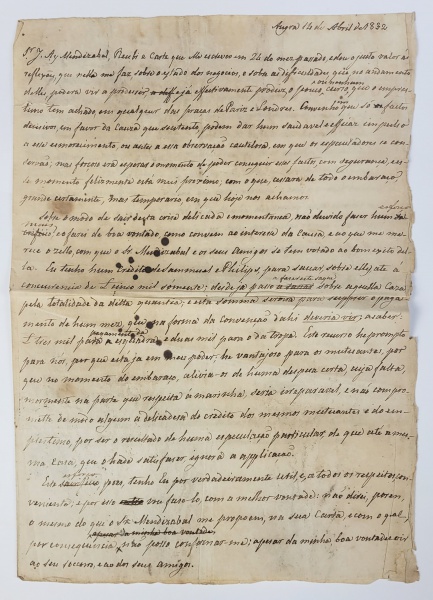 Angra 14 de Abril de 1832
Sr. J. Ay. Mendizabal, Recebi a Carta que Me escreveo em 24 do mez passado, e dou o justo valor as
reflexões, que nella me faz sobre o estado dos negocios, e sobre as difficuldades que no andamento
delles poderá vir a produzir o effectivamente produz, o pouco, curso que o empres-
ou nenhum
timo tem achado, em qualquer das praças de Pariz e Londres. Convenho que só factos
decisivos, em favor da Causa que sustento podem dar hum saudavel e efficaz impulso
a esse esmorecimento, ou antes a essa observação cautelosa, em que os especuladores se con-
servão; mas forçoso hera esperar o momento de poder conseguir esses factos, com segurança, es-
se momento felizmente está mui proximo, com o que, cessará de todo o embaraço
grande certamente, mas temporario, em que hoje nos achamos.
Sobre o modo de sair desta crise delicada e momentanea, não duvido fazer hum
esforço
e o farei de boa vontade como convem ao interesse da Causa e ao que me me-
rece o zello, com que o Sr. Mendizabal e os seus Amigos se tem votado ao bom exito del-
la. Eu tenho hum Credito de Samuel e Philips, para sacar sobre elles até a
concurrencia de £ cinco mil somente: desde já passo a sobre aquella Caza
pela totalidade da dista quantia; e esta somma servirá para supprir o paga-
mento de hum mez, que na forma da Convenção dahi deveria vir; a saber:
£ tres mil para a esquadra, e duas mil para o da tropa. Este recurso he prompto
para nós, por que está já em meu poder; he vantajoso para os mutuantes, por
que no momento do embaraço, alivia-os de huma despeza certa, cuja falta,
mormente na parte que respeita á marinha, seria irreparavel, e não compro-
mete de módo algum a delicadeza de credito dos mesmos mutuantes e do em-
prestimo, por ser o resultado de huma especulação particular, de que até a mes-
ma Caza, que o hade satisfazer ignora a applicação.
Este pois, tenho Eu por verdadeiramente util, e a todos os respeitos con-
veniente; e por isso vou faze-lo, com a melhor vontade: não direi, porem,
o mesmo do que o Sr. Mendizabal me propoem, na sua Carta, e com o qual
apesar da minha boa vontade
por consequencia, não posso conformar-me; apesar da minha boa vontade vir
ao seu socorro, e ao dos seus amigos.